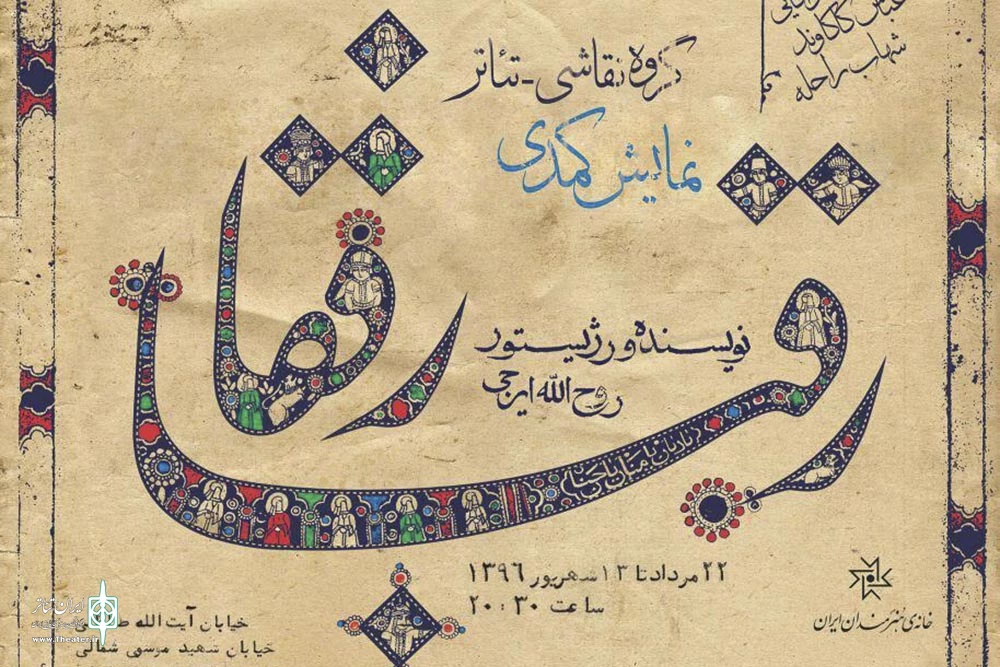 عباس کاکاوند
شهاب راحله
گروه نقاشی-تئاتر
نمایش کمدی
رفقا
رقبا
نویسنده و رژیستور
روح الله ایرجی
۲۲ مرداد تا ۱۳ شهریور ۱۳۹۶
ساعت ۲۰:۳۰
خانه‌ی هنرمندان ایران
خیابان آیت الله
خیابان شهید موسوی شمالی
ایران تئاتر
www.Theater.ir